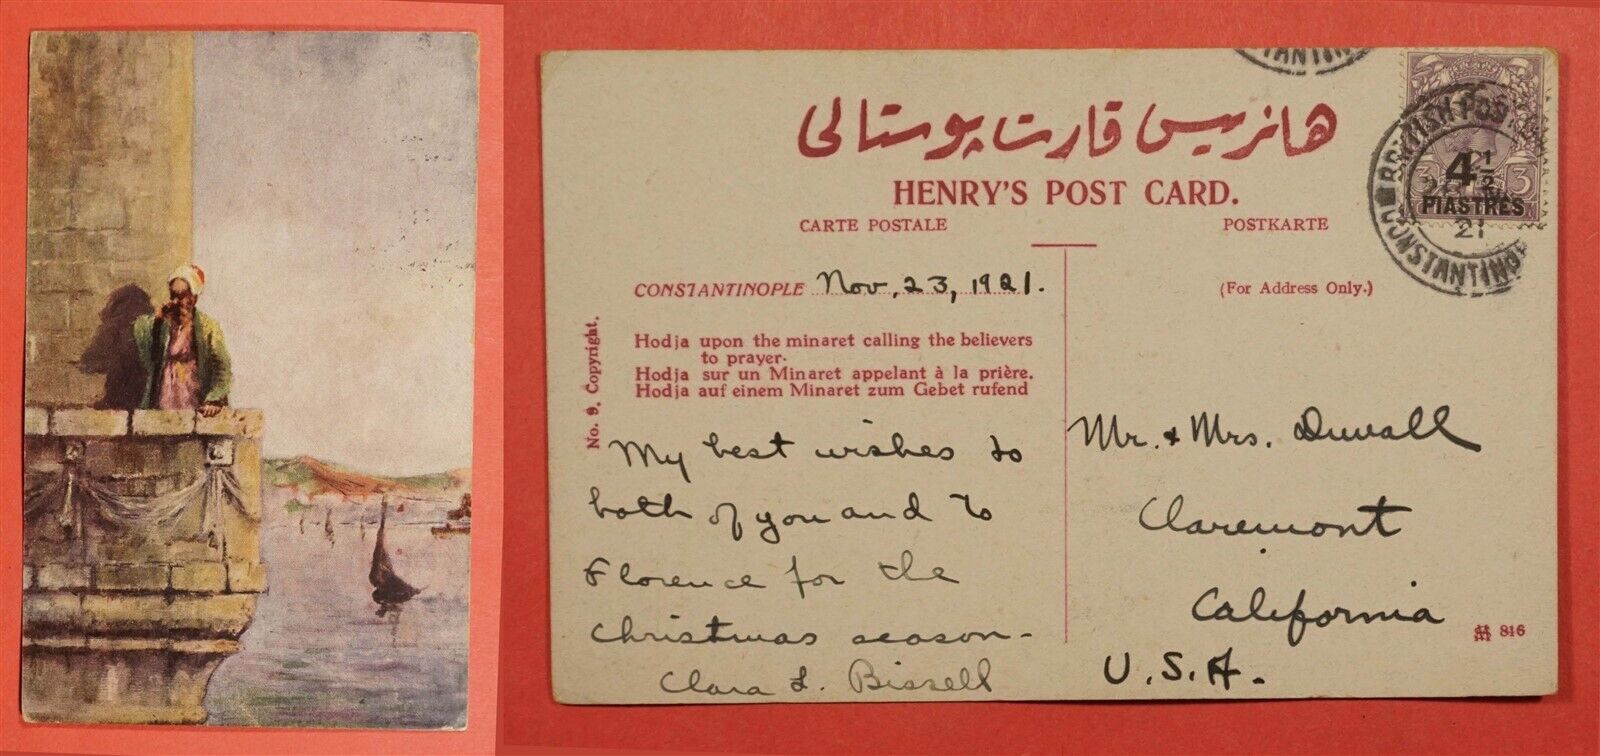 TANTIN
هانریس قارت پوستالی
HENRY'S POST CARD.
CARTE POSTALE
POSTKARTE
CONSTANTINOPLE Nov, 23, 1921.
(For Address Only.)
Hodja upon the minaret calling the believers
to prayer.
Hodja sur un Minaret appelant à la prière.
Hodja auf einem Minaret zum Gebet rufend
No. 9. Copyright.
My best wishes to
both of you and to
Florence for the
Christmas season-
Clara L. Bissell
Mr. & Mrs. Duvall
Claremont
California
U.S.A.
816
BRITISH POS
CONSTANTINO
21
3 3
4½
PIASTRES